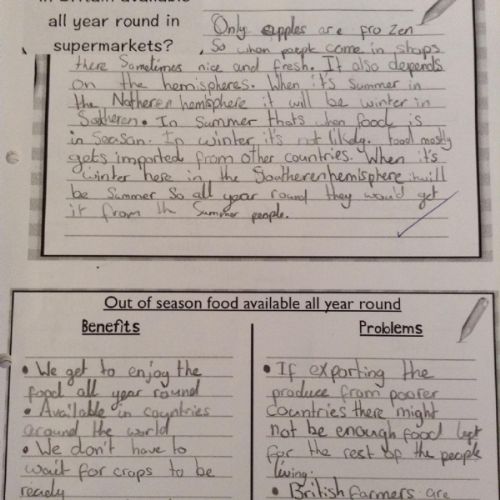 in Britain available
all year round in
supermarkets?
Only apples are frozen
So when peopt come in shops
there Sometimes nice and fresh. It also depends
on the hemispheres. When it's Summer in
the Notheren hemisphere it will be winter in
Sotheren. In Summer thats when food is
in Seoson. In winter it's not likely. food mostly
gets imported from other countries. When it's
winter here in the Southerenhemisphere it will
be Summer So all year round they would get
it from the Summer people.
Out of season food available all year round
Benefits
Problems
• We get to enjoy the
food all year round
• Available in countries
around the world
• We don't have to
wait for crops to be
ready
• If exporting the
produce from poorer
Countries there might
not be enough food left
for the rest of the people
living.
• British farmers are